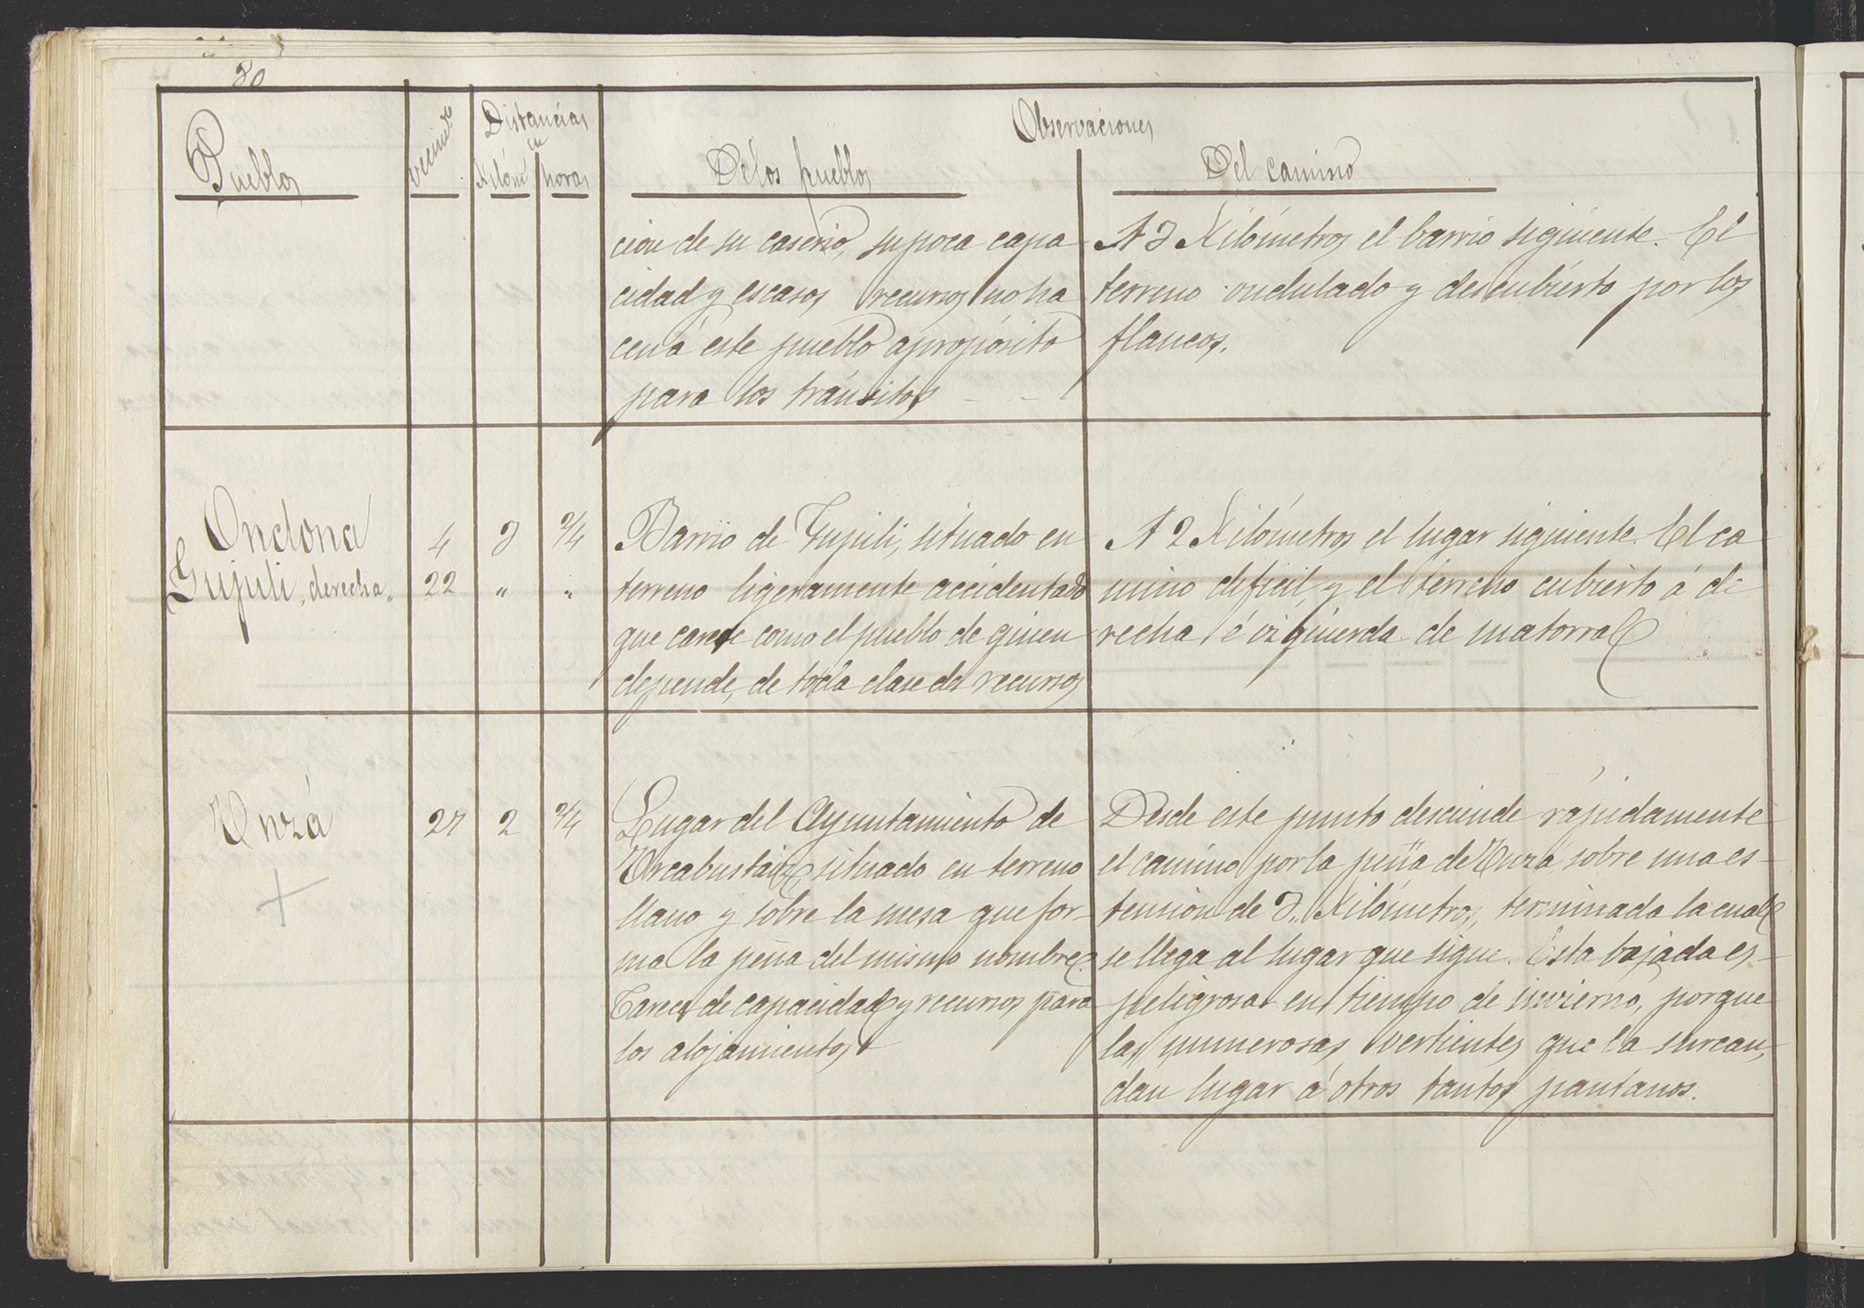 80
Pueblos
vecinos
Distancias
en
Kilóm
horas
Observaciones
De los pueblos
Del camino
cion de su caserio, su poca capa
cidad y escasos recursos no ha
cen á este pueblo apropósito
para los tránsitos
A 3 Kilómetros el barrio siguiente. El
terreno ondulado y descubierto por los
flancos.
Ondona 4 3 3/4
Gujuli, derecha. 22 " "
Barrio de Gujuli, situado en
terreno ligeramente accidentado
que carece como el pueblo de quien
depende, de toda clase de recursos
A 2 Kilómetros el lugar siguiente. El ca
mino dificil y el terreno cubierto á de
recha é izquierda de matorral
Unzá 27 2 2/4
Lugar del Ayuntamiento de
Urcabustaiz situado en terreno
llano y sobre la mesa que for-
ma la peña del mismo nombre.
Carece de capacidad y recursos para
los alojamientos
Desde este punto desciende rápidamente
el camino por la peña de Unzá, sobre una es-
tension de 3 Kilómetros, terminada la cual
se llega al lugar que sigue. Esta bajada es
peligrosa en tiempo de invierno, porque
las numerosas vertientes que la surcan,
dan lugar á otros tantos pantanos.